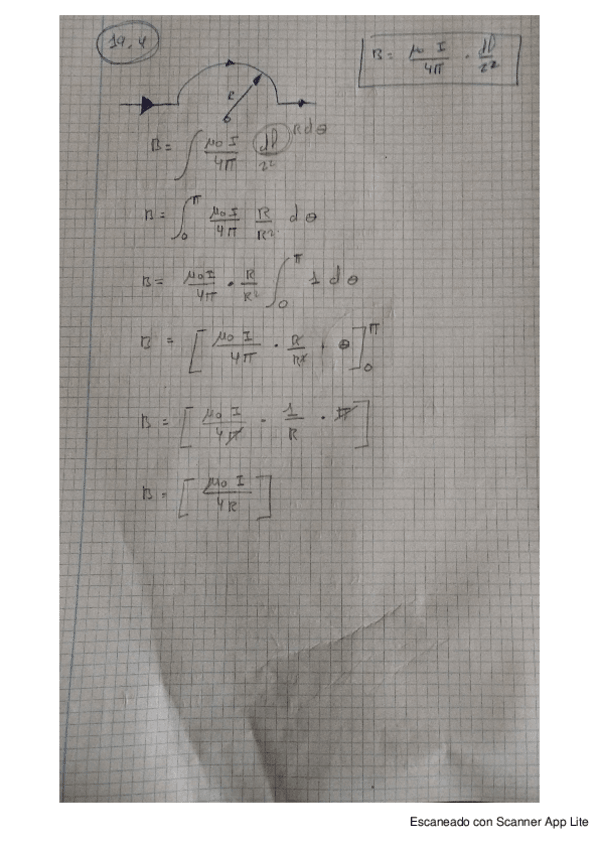 19.4
B = μ0 I / 4π · dl / r²
R
B = ∫ μ0 I / 4π dl / r² R dθ
B = ∫₀^π μ0 I / 4π R / R² dθ
B = μ0 I / 4π · R / R² ∫₀^π 1 dθ
B = [ μ0 I / 4π · R / R² · θ ]₀^π
B = [ μ0 I / 4π · 1 / R · π ]
B = [ μ0 I / 4R ]
Escaneado con Scanner App Lite